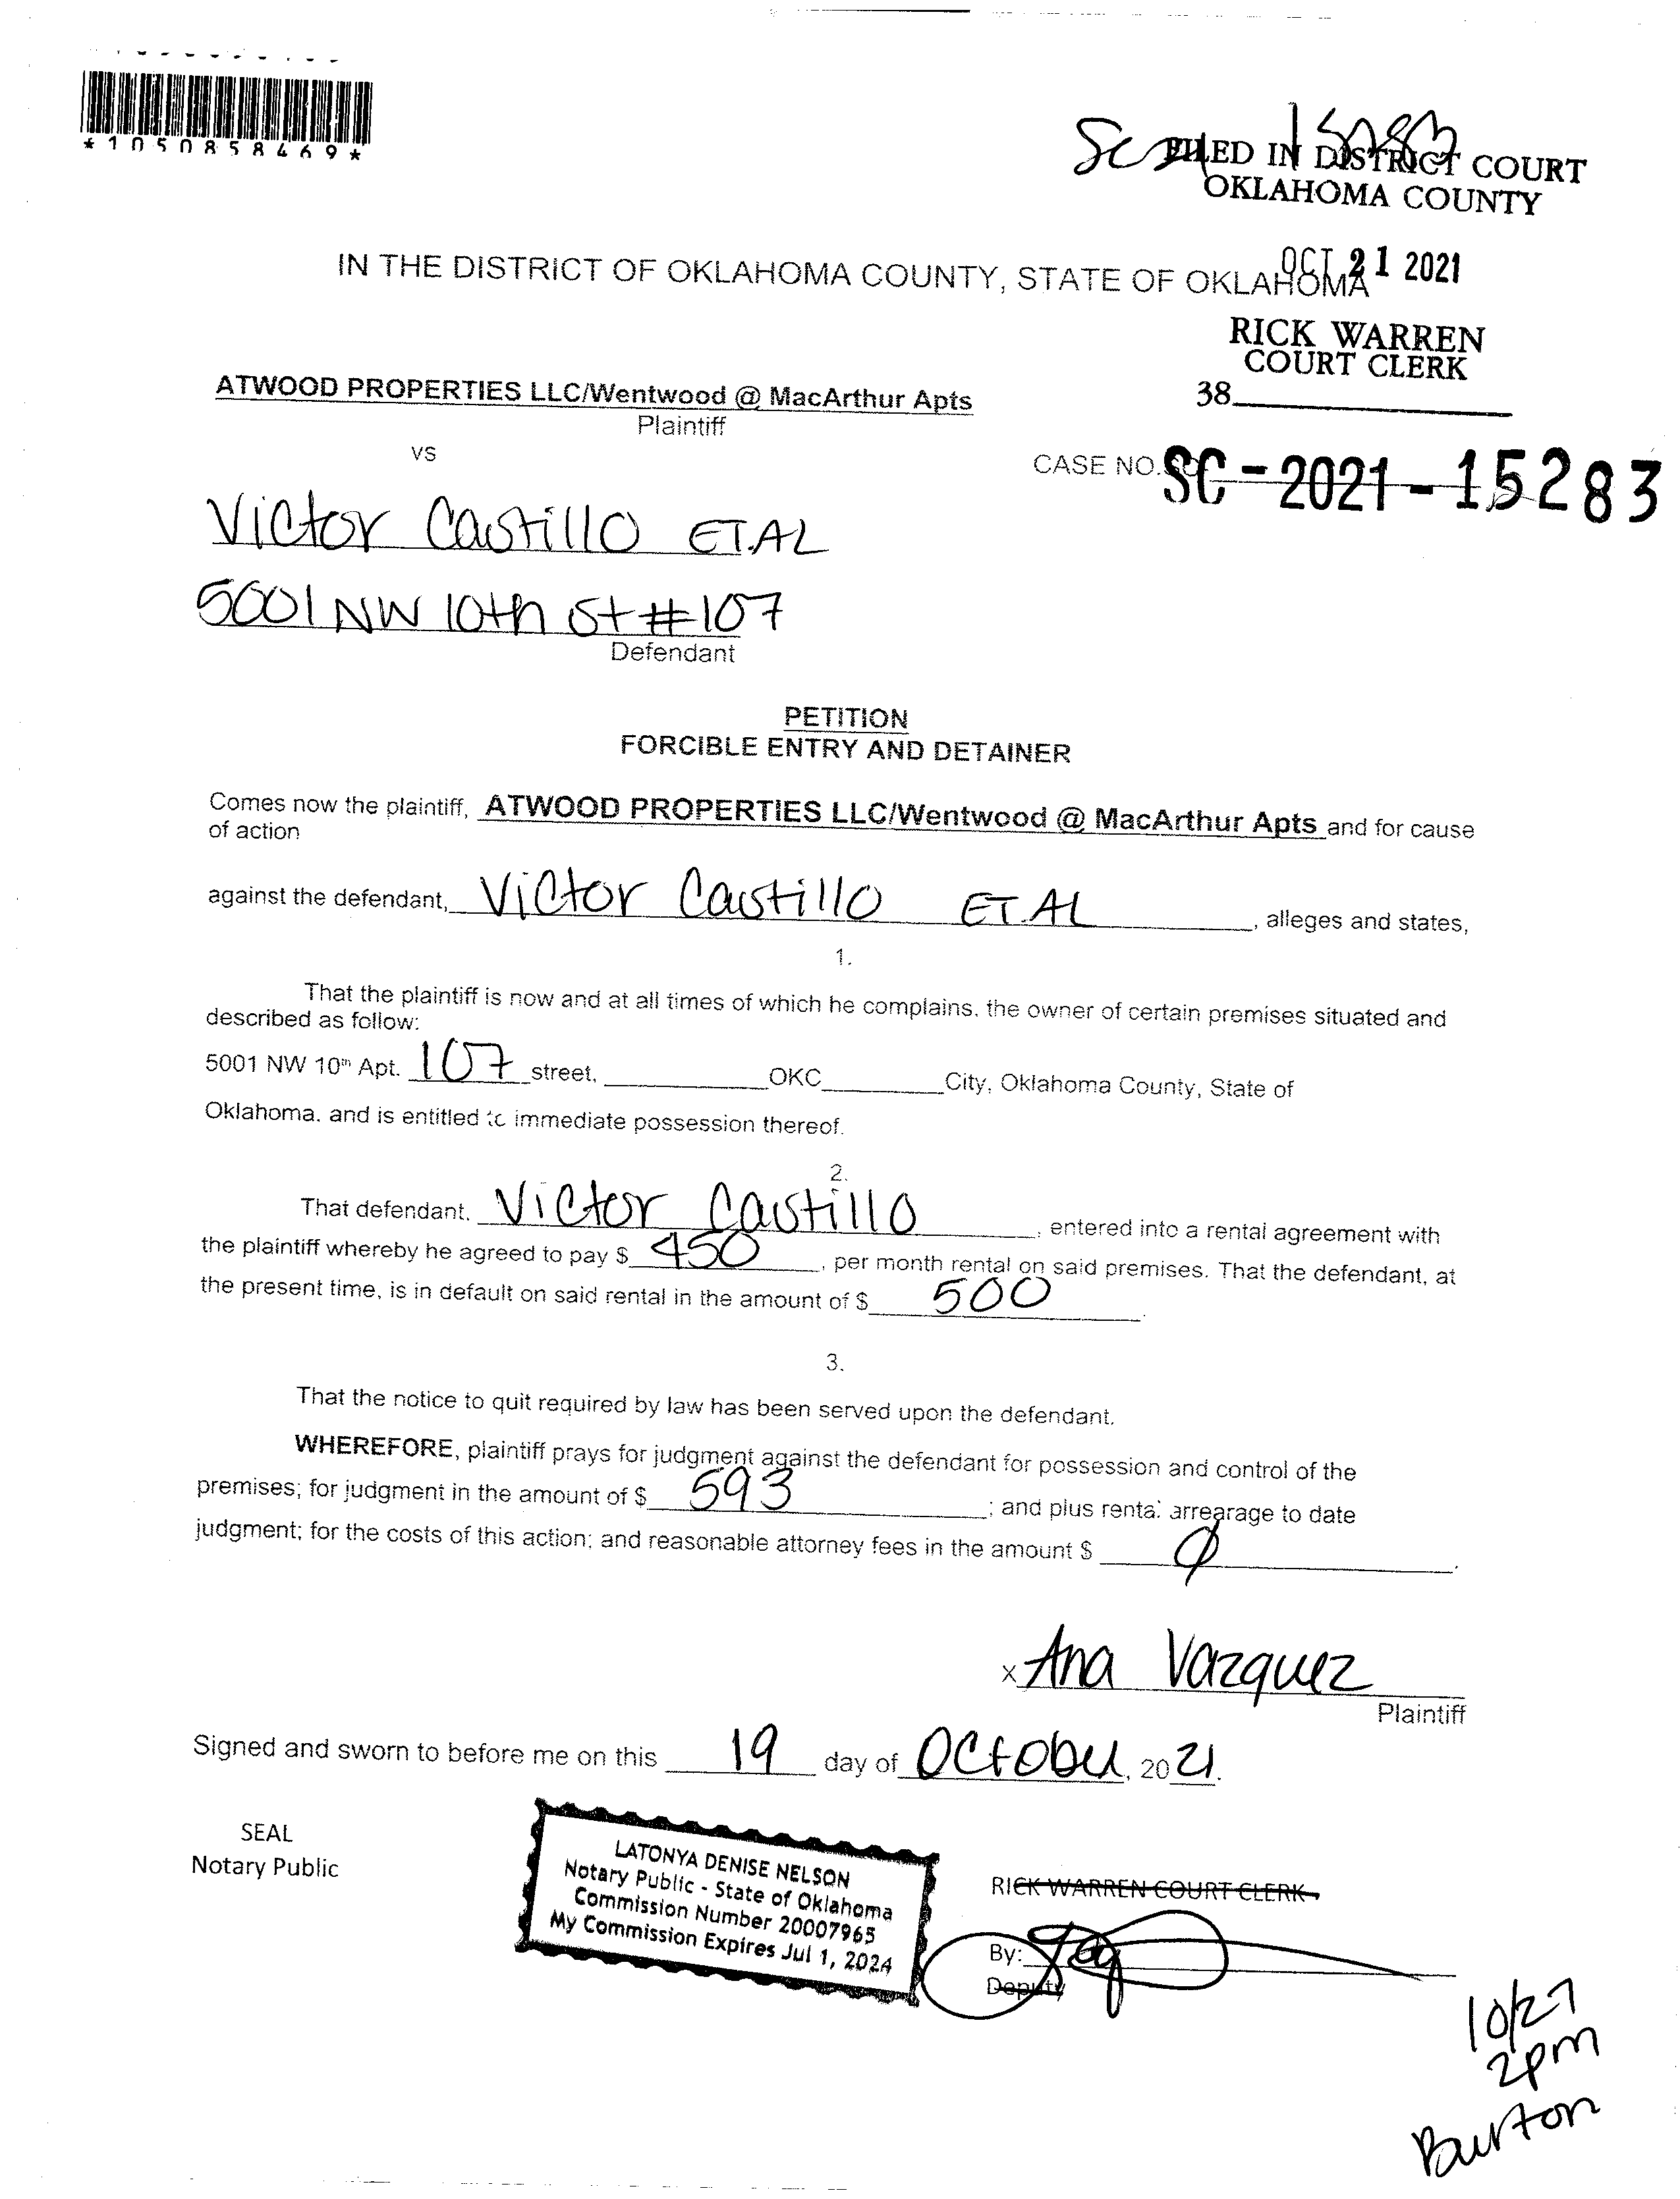 *1050858469*
FILED IN DISTRICT COURT
OKLAHOMA COUNTY
IN THE DISTRICT OF OKLAHOMA COUNTY, STATE OF OKLAHOMA
OCT 21 2021
RICK WARREN
COURT CLERK
38
ATWOOD PROPERTIES LLC/Wentwood @ MacArthur Apts
Plaintiff
vs
CASE NO. SC-2021-15283
Victor Castillo ET.AL
5001 NW 10th St #107
Defendant
PETITION
FORCIBLE ENTRY AND DETAINER
Comes now the plaintiff, ATWOOD PROPERTIES LLC/Wentwood @ MacArthur Apts and for cause
of action
against the defendant, Victor Castillo ET.AL, alleges and states,
1.
That the plaintiff is now and at all times of which he complains, the owner of certain premises situated and
described as follow:
5001 NW 10th Apt. 107 street, OKC City, Oklahoma County, State of
Oklahoma. and is entitled to immediate possession thereof.
2.
That defendant, Victor Castillo, entered into a rental agreement with
the plaintiff whereby he agreed to pay $ 450, per month rental on said premises. That the defendant, at
the present time, is in default on said rental in the amount of $ 500.
3.
That the notice to quit required by law has been served upon the defendant.
WHEREFORE, plaintiff prays for judgment against the defendant for possession and control of the
premises; for judgment in the amount of $ 593; and plus rental arrearage to date
judgment; for the costs of this action; and reasonable attorney fees in the amount $ 0.
x Ana Vazquez
Plaintiff
Signed and sworn to before me on this 19 day of October, 2021.
SEAL
Notary Public
LATONYA DENISE NELSON
Notary Public - State of Oklahoma
Commission Number 20007965
My Commission Expires Jul 1, 2024
RICK WARREN COURT CLERK
By:
Deputy
10/27
2pm
Burton